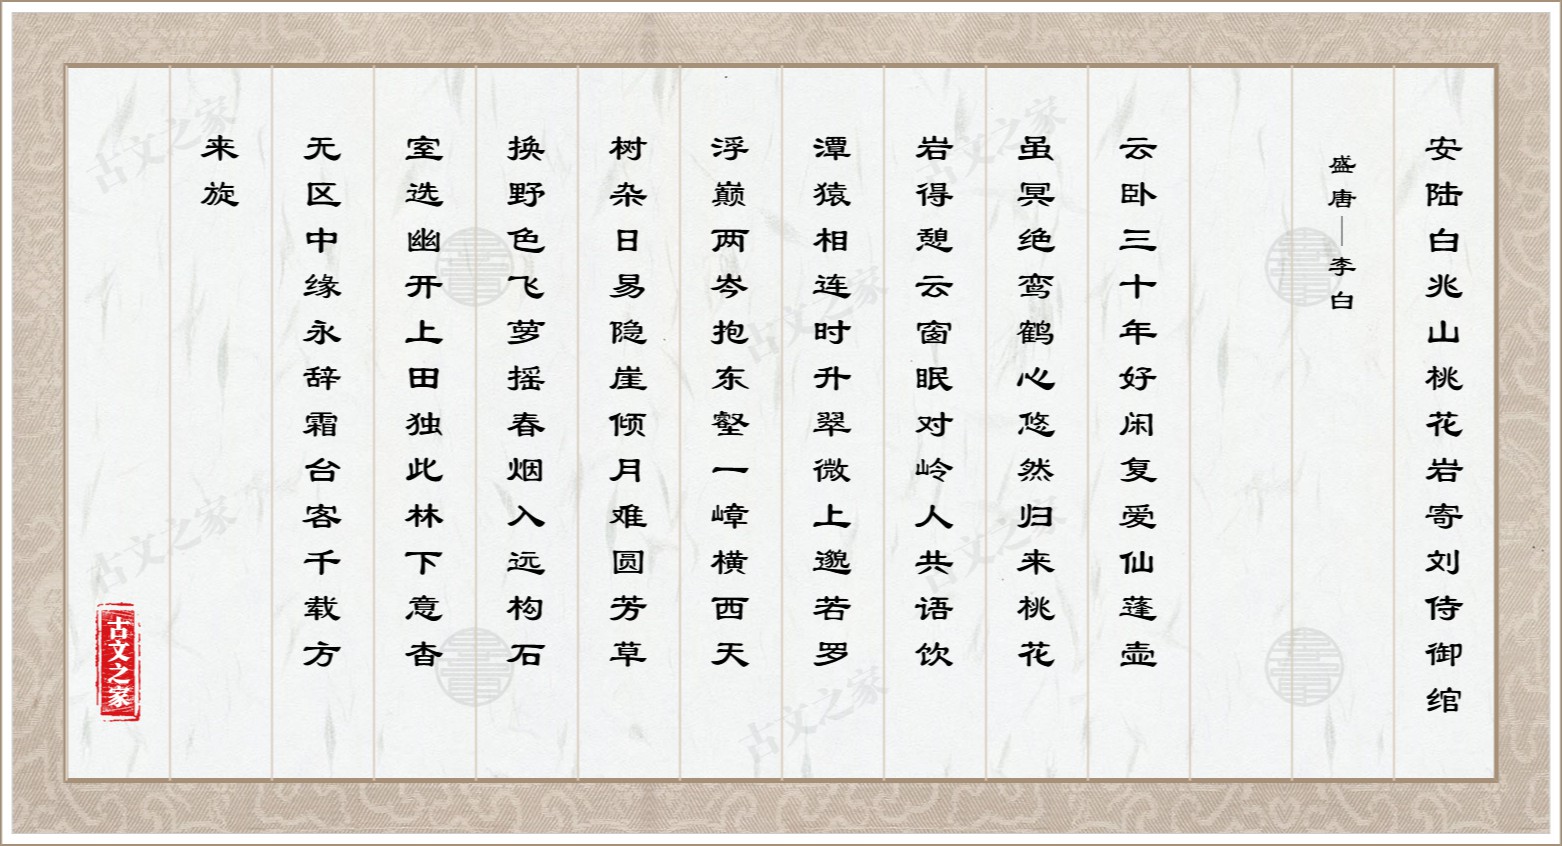 安陆白兆山桃花岩寄刘侍御绾
盛唐—李白
云卧三十年好闲复爱仙蓬壶
虽冥绝鸾鹤心悠然归来桃花
岩得憩云窗眠对岭人共语饮
潭猿相连时升翠微上邈若罗
浮巅两岑抱东壑一嶂横西天
树杂日易隐崖倾月难圆芳草
换野色飞萝摇春烟入远构石
室选幽开上田独此林下意杳
无区中缘永辞霜台客千载方
来旋
古文之家
古文之家
古文之家
古文之家
古文之家
古文之家
古文之家